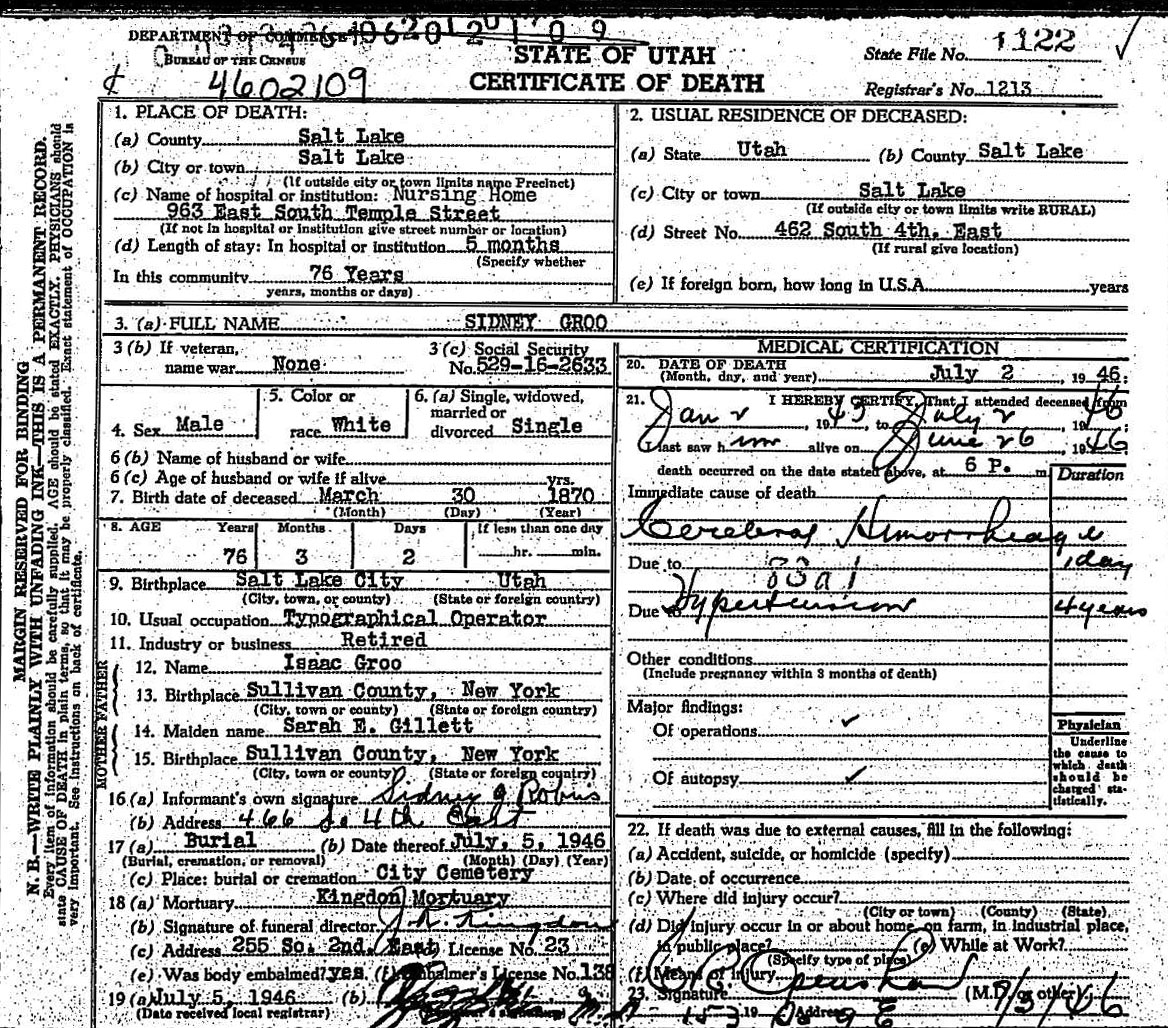 DEPARTMENT OF COMMERCE
BUREAU OF THE CENSUS
4602109
STATE OF UTAH
CERTIFICATE OF DEATH
State File No. 1122
Registrar's No. 1213
MARGIN RESERVED FOR BINDING
N. B.—WRITE PLAINLY WITH UNFADING INK—THIS IS A PERMANENT RECORD.
Every item of information should be carefully supplied. AGE should be stated EXACTLY. PHYSICIANS should
state CAUSE OF DEATH in plain terms, so that it may be properly classified. Exact statement of OCCUPATION is
very important. See instructions on back of certificate.
1. PLACE OF DEATH:
(a) County Salt Lake
(b) City or town Salt Lake
(If outside city or town limits name Precinct)
(c) Name of hospital or institution: Nursing Home
963 East South Temple Street
(If not in hospital or institution give street number or location)
(d) Length of stay: In hospital or institution 5 months
(Specify whether
In this community 76 Years
years, months or days)
2. USUAL RESIDENCE OF DECEASED:
(a) State Utah (b) County Salt Lake
(c) City or town Salt Lake
(If outside city or town limits write RURAL)
(d) Street No. 462 South 4th. East
(If rural give location)
(e) If foreign born, how long in U.S.A. years
3. (a) FULL NAME SIDNEY GROO
3 (b) If veteran,
name war None
3 (c) Social Security
No. 529-16-2633
4. Sex Male
5. Color or
race White
6. (a) Single, widowed,
married or
divorced Single
6 (b) Name of husband or wife
6 (c) Age of husband or wife if alive yrs.
7. Birth date of deceased March 30 1870
(Month) (Day) (Year)
8. AGE Years Months Days If less than one day
76 3 2 hr. min.
9. Birthplace Salt Lake City Utah
(City, town, or county) (State or foreign country)
10. Usual occupation Typographical Operator
11. Industry or business Retired
FATHER
12. Name Isaac Groo
13. Birthplace Sullivan County, New York
(City, town or county) (State or foreign country)
MOTHER
14. Maiden name Sarah E. Gillett
15. Birthplace Sullivan County, New York
(City, town or county) (State or foreign country)
16 (a) Informant's own signature Sidney G
(b) Address 466 So 4th East
17 (a) Burial (b) Date thereof July, 5, 1946
(Burial, cremation, or removal) (Month) (Day) (Year)
(c) Place: burial or cremation City Cemetery
18 (a) Mortuary Kingdon Mortuary
(b) Signature of funeral director J. R. Kingdon
(c) Address 255 So. 2nd. East License No. 23
(e) Was body embalmed? yes (f) Embalmer's License No. 138
19 (a) July 5, 1946 (b)
(Date received local registrar)
MEDICAL CERTIFICATION
20. DATE OF DEATH
(Month, day, and year) July 2, 1946:
21. I HEREBY CERTIFY, That I attended deceased from
Jan 2, 1945, to July 2, 1946
I last saw him alive on June 26 1946
death occurred on the date stated above, at 6 P. m.
Duration
Immediate cause of death
Cerebral Hemorrhage
1 day
Due to 83a1
Due to Hypertension 4 years
Other conditions
(Include pregnancy within 3 months of death)
Major findings:
Of operations ✓
Of autopsy ✓
Physician
Underline
the cause to
which death
should be
charged sta-
tistically.
22. If death was due to external causes, fill in the following:
(a) Accident, suicide, or homicide (specify)
(b) Date of occurrence
(c) Where did injury occur?
(City or town) (County) (State)
(d) Did injury occur in or about home, on farm, in industrial place,
in public place? (e) While at Work?
(Specify type of place)
(f) Means of injury
23. Signature (M.D. or other) 7/3/46
Address